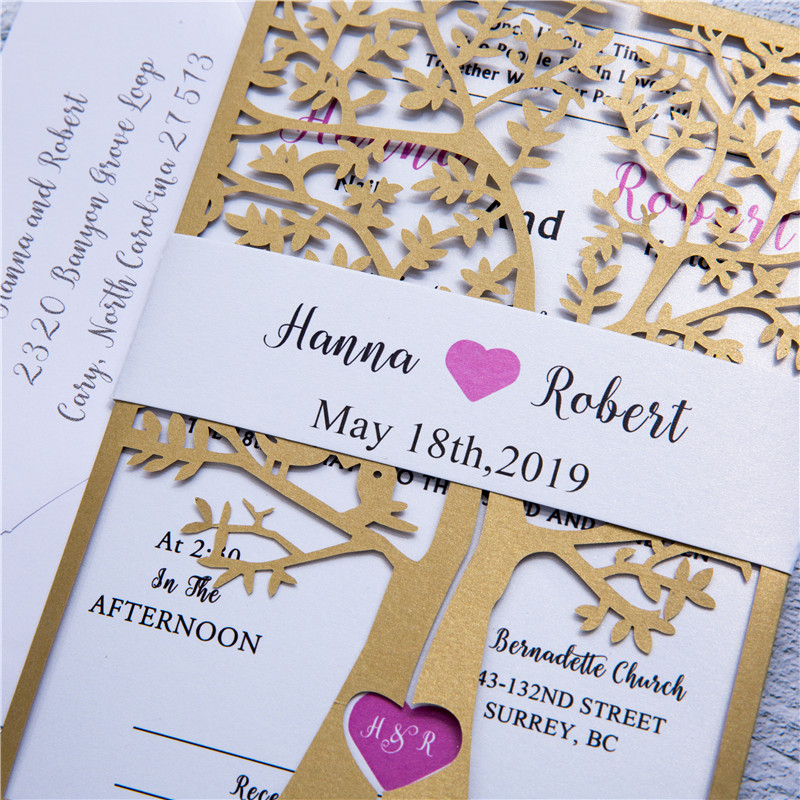 Hanna and Robert
2320 Banyon Grove Loop
Cary, North Carolina 27513
Once Upon a Time
People Fell In Love
Together With Our
Hanna
And
Robert
Hanna Robert
May 18th,2019
At 2:30
In The
AFTERNOON
Bernadette Church
43-132ND STREET
SURREY, BC
H & R